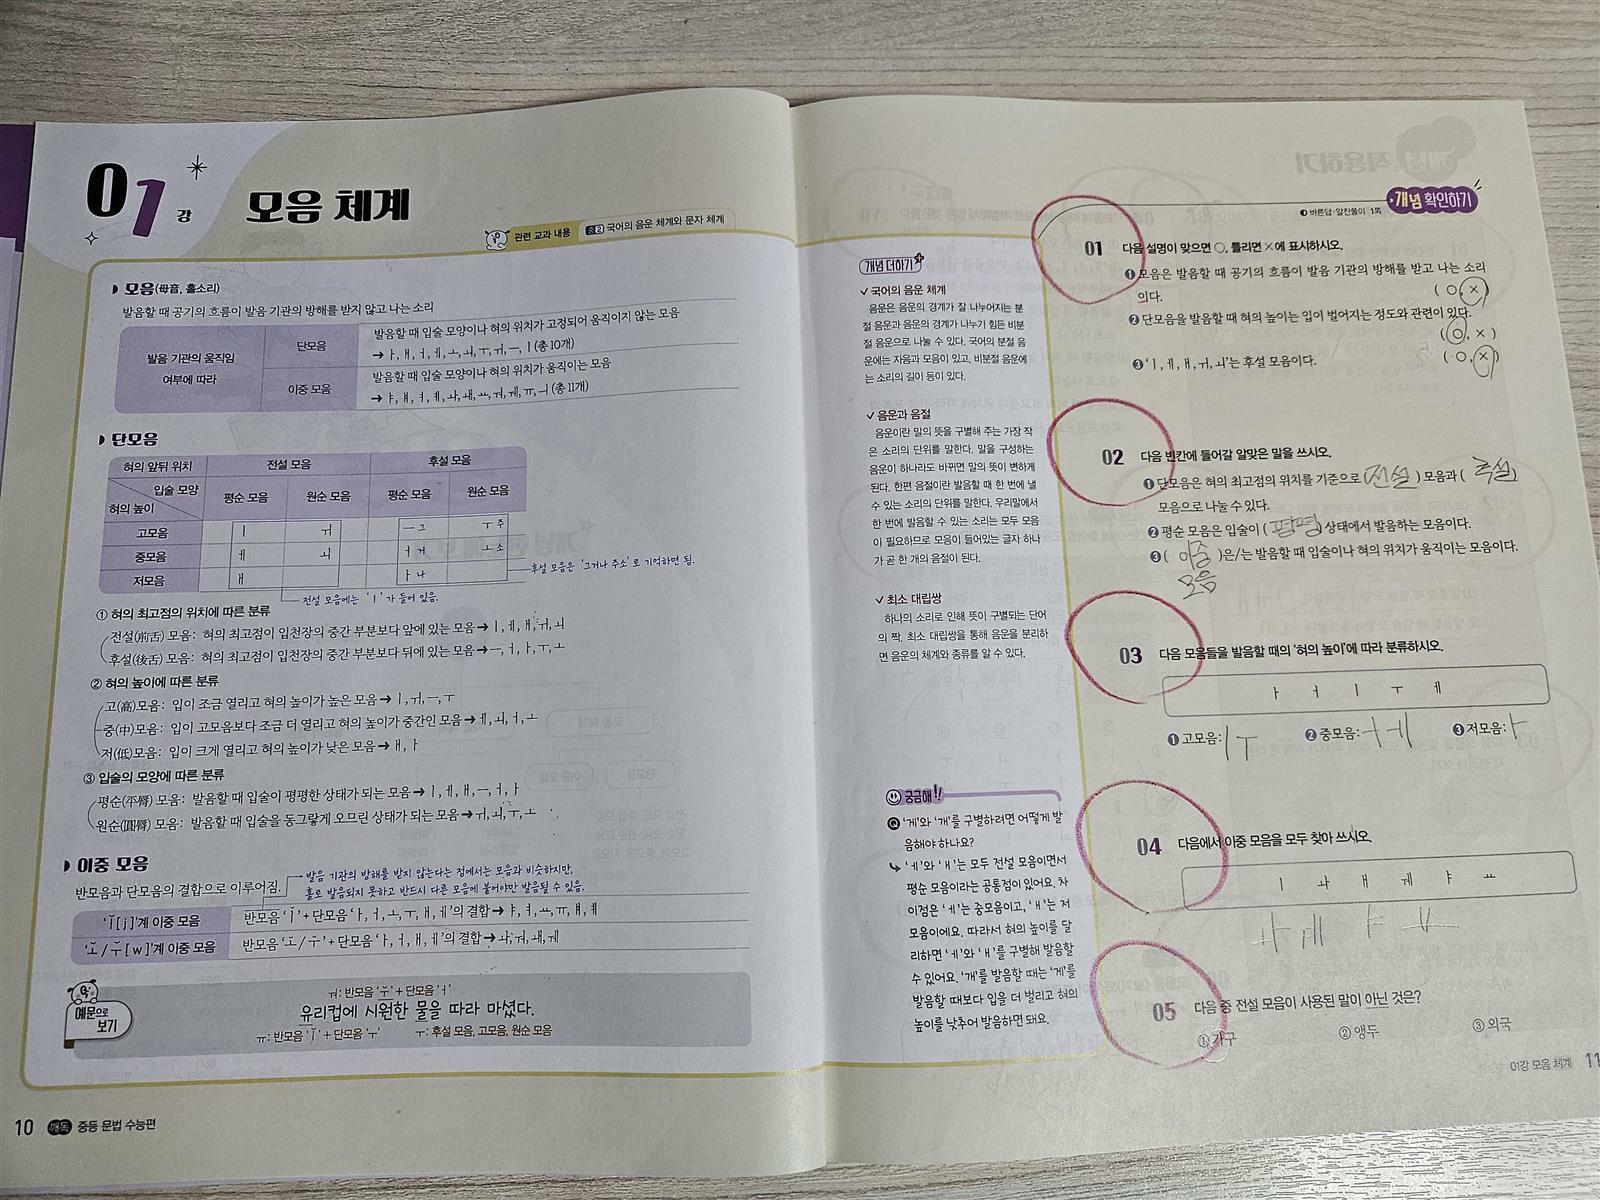 01강 모음 체계
관련 교과 내용 중2 국어의 음운 체계와 문자 체계
모음(母音, 홀소리)
발음할 때 공기의 흐름이 발음 기관의 방해를 받지 않고 나는 소리
발음 기관의 움직임
여부에 따라
단모음
발음할 때 입술 모양이나 혀의 위치가 고정되어 움직이지 않는 모음
→ ㅏ, ㅐ, ㅓ, ㅔ, ㅗ, ㅚ, ㅜ, ㅟ, ㅡ, ㅣ (총 10개)
이중 모음
발음할 때 입술 모양이나 혀의 위치가 움직이는 모음
→ ㅑ, ㅒ, ㅕ, ㅖ, ㅘ, ㅙ, ㅛ, ㅝ, ㅞ, ㅠ, ㅢ (총 11개)
단모음
혀의 앞뒤 위치 전설 모음 후설 모음
입술 모양
혀의 높이
평순 모음 원순 모음 평순 모음 원순 모음
고모음 ㅣ ㅟ ㅡ 그 ㅜ 주
중모음 ㅔ ㅚ ㅓ 거 ㅗ 소
저모음 ㅐ ㅏ 나
후설 모음은 '그거나 주소'로 기억하면 됨.
전설 모음에는 'ㅣ'가 들어 있음.
① 혀의 최고점의 위치에 따른 분류
전설(前舌) 모음: 혀의 최고점이 입천장의 중간 부분보다 앞에 있는 모음 → ㅣ, ㅔ, ㅐ, ㅟ, ㅚ
후설(後舌) 모음: 혀의 최고점이 입천장의 중간 부분보다 뒤에 있는 모음 → ㅡ, ㅓ, ㅏ, ㅜ, ㅗ
② 혀의 높이에 따른 분류
고(高)모음: 입이 조금 열리고 혀의 높이가 높은 모음 → ㅣ, ㅟ, ㅡ, ㅜ
중(中)모음: 입이 고모음보다 조금 더 열리고 혀의 높이가 중간인 모음 → ㅔ, ㅚ, ㅓ, ㅗ
저(低)모음: 입이 크게 열리고 혀의 높이가 낮은 모음 → ㅐ, ㅏ
③ 입술의 모양에 따른 분류
평순(平脣) 모음: 발음할 때 입술이 평평한 상태가 되는 모음 → ㅣ, ㅔ, ㅐ, ㅡ, ㅓ, ㅏ
원순(圓脣) 모음: 발음할 때 입술을 동그랗게 오므린 상태가 되는 모음 → ㅟ, ㅚ, ㅜ, ㅗ
이중 모음
발음 기관의 방해를 받지 않는다는 점에서는 모음과 비슷하지만,
홀로 발음되지 못하고 반드시 다른 모음에 붙어야만 발음될 수 있음.
반모음과 단모음의 결합으로 이루어짐.
'ㅣ̆[j]'계 이중 모음 반모음 'ㅣ̆' + 단모음 'ㅏ, ㅓ, ㅗ, ㅜ, ㅐ, ㅔ'의 결합 → ㅑ, ㅕ, ㅛ, ㅠ, ㅒ, ㅖ
'ㅗ̆/ㅜ̆[w]'계 이중 모음 반모음 'ㅗ̆/ㅜ̆' + 단모음 'ㅏ, ㅓ, ㅐ, ㅔ'의 결합 → ㅘ, ㅝ, ㅙ, ㅞ
예문으로
보기
ㅝ: 반모음 'ㅜ̆' + 단모음 'ㅓ'
유리컵에 시원한 물을 따라 마셨다.
ㅠ: 반모음 'ㅣ̆' + 단모음 'ㅜ' ㅜ: 후설 모음, 고모음, 원순 모음
10 깨독 중등 문법 수능편
개념 더하기
✓ 국어의 음운 체계
음운은 음운의 경계가 잘 나누어지는 분
절 음운과 음운의 경계가 나누기 힘든 비분
절 음운으로 나눌 수 있다. 국어의 분절 음
운에는 자음과 모음이 있고, 비분절 음운에
는 소리의 길이 등이 있다.
✓ 음운과 음절
음운이란 말의 뜻을 구별해 주는 가장 작
은 소리의 단위를 말한다. 말을 구성하는
음운이 하나라도 바뀌면 말의 뜻이 변하게
된다. 한편 음절이란 발음할 때 한 번에 낼
수 있는 소리의 단위를 말한다. 우리말에서
한 번에 발음할 수 있는 소리는 모두 모음
이 필요하므로 모음이 들어있는 글자 하나
가 곧 한 개의 음절이 된다.
✓ 최소 대립쌍
하나의 소리로 인해 뜻이 구별되는 단어
의 짝. 최소 대립쌍을 통해 음운을 분리하
면 음운의 체계와 종류를 알 수 있다.
궁금해!!
Q '게'와 '개'를 구별하려면 어떻게 발
음해야 하나요?
'ㅔ'와 'ㅐ'는 모두 전설 모음이면서
평순 모음이라는 공통점이 있어요. 차
이점은 'ㅔ'는 중모음이고, 'ㅐ'는 저
모음이에요. 따라서 혀의 높이를 달
리하면 'ㅔ'와 'ㅐ'를 구별해 발음할
수 있어요. '개'를 발음할 때는 '게'를
발음할 때보다 입을 더 벌리고 혀의
높이를 낮추어 발음하면 돼요.
바른답·알찬풀이 1쪽 개념 확인하기
01 다음 설명이 맞으면 ○, 틀리면 ×에 표시하시오.
❶ 모음은 발음할 때 공기의 흐름이 발음 기관의 방해를 받고 나는 소리
이다. ( ○, × )
❷ 단모음을 발음할 때 혀의 높이는 입이 벌어지는 정도와 관련이 있다.
( ○, × )
❸ 'ㅣ, ㅔ, ㅐ, ㅟ, ㅚ'는 후설 모음이다. ( ○, × )
02 다음 빈칸에 들어갈 알맞은 말을 쓰시오.
❶ 단모음은 혀의 최고점의 위치를 기준으로 (전설) 모음과 (후설)
모음으로 나눌 수 있다.
❷ 평순 모음은 입술이 (평평) 상태에서 발음하는 모음이다.
❸ (이중
모음)은/는 발음할 때 입술이나 혀의 위치가 움직이는 모음이다.
03 다음 모음들을 발음할 때의 '혀의 높이'에 따라 분류하시오.
ㅏ ㅓ ㅣ ㅜ ㅔ
❶ 고모음: ㅣ ㅜ ❷ 중모음: ㅓ ㅔ ❸ 저모음: ㅏ
04 다음에서 이중 모음을 모두 찾아 쓰시오.
ㅣ ㅘ ㅐ ㅞ ㅑ ㅛ
ㅘ ㅞ ㅑ ㅛ
05 다음 중 전설 모음이 사용된 말이 아닌 것은?
① 가구 ② 앵두 ③ 외국
01강 모음 체계 11